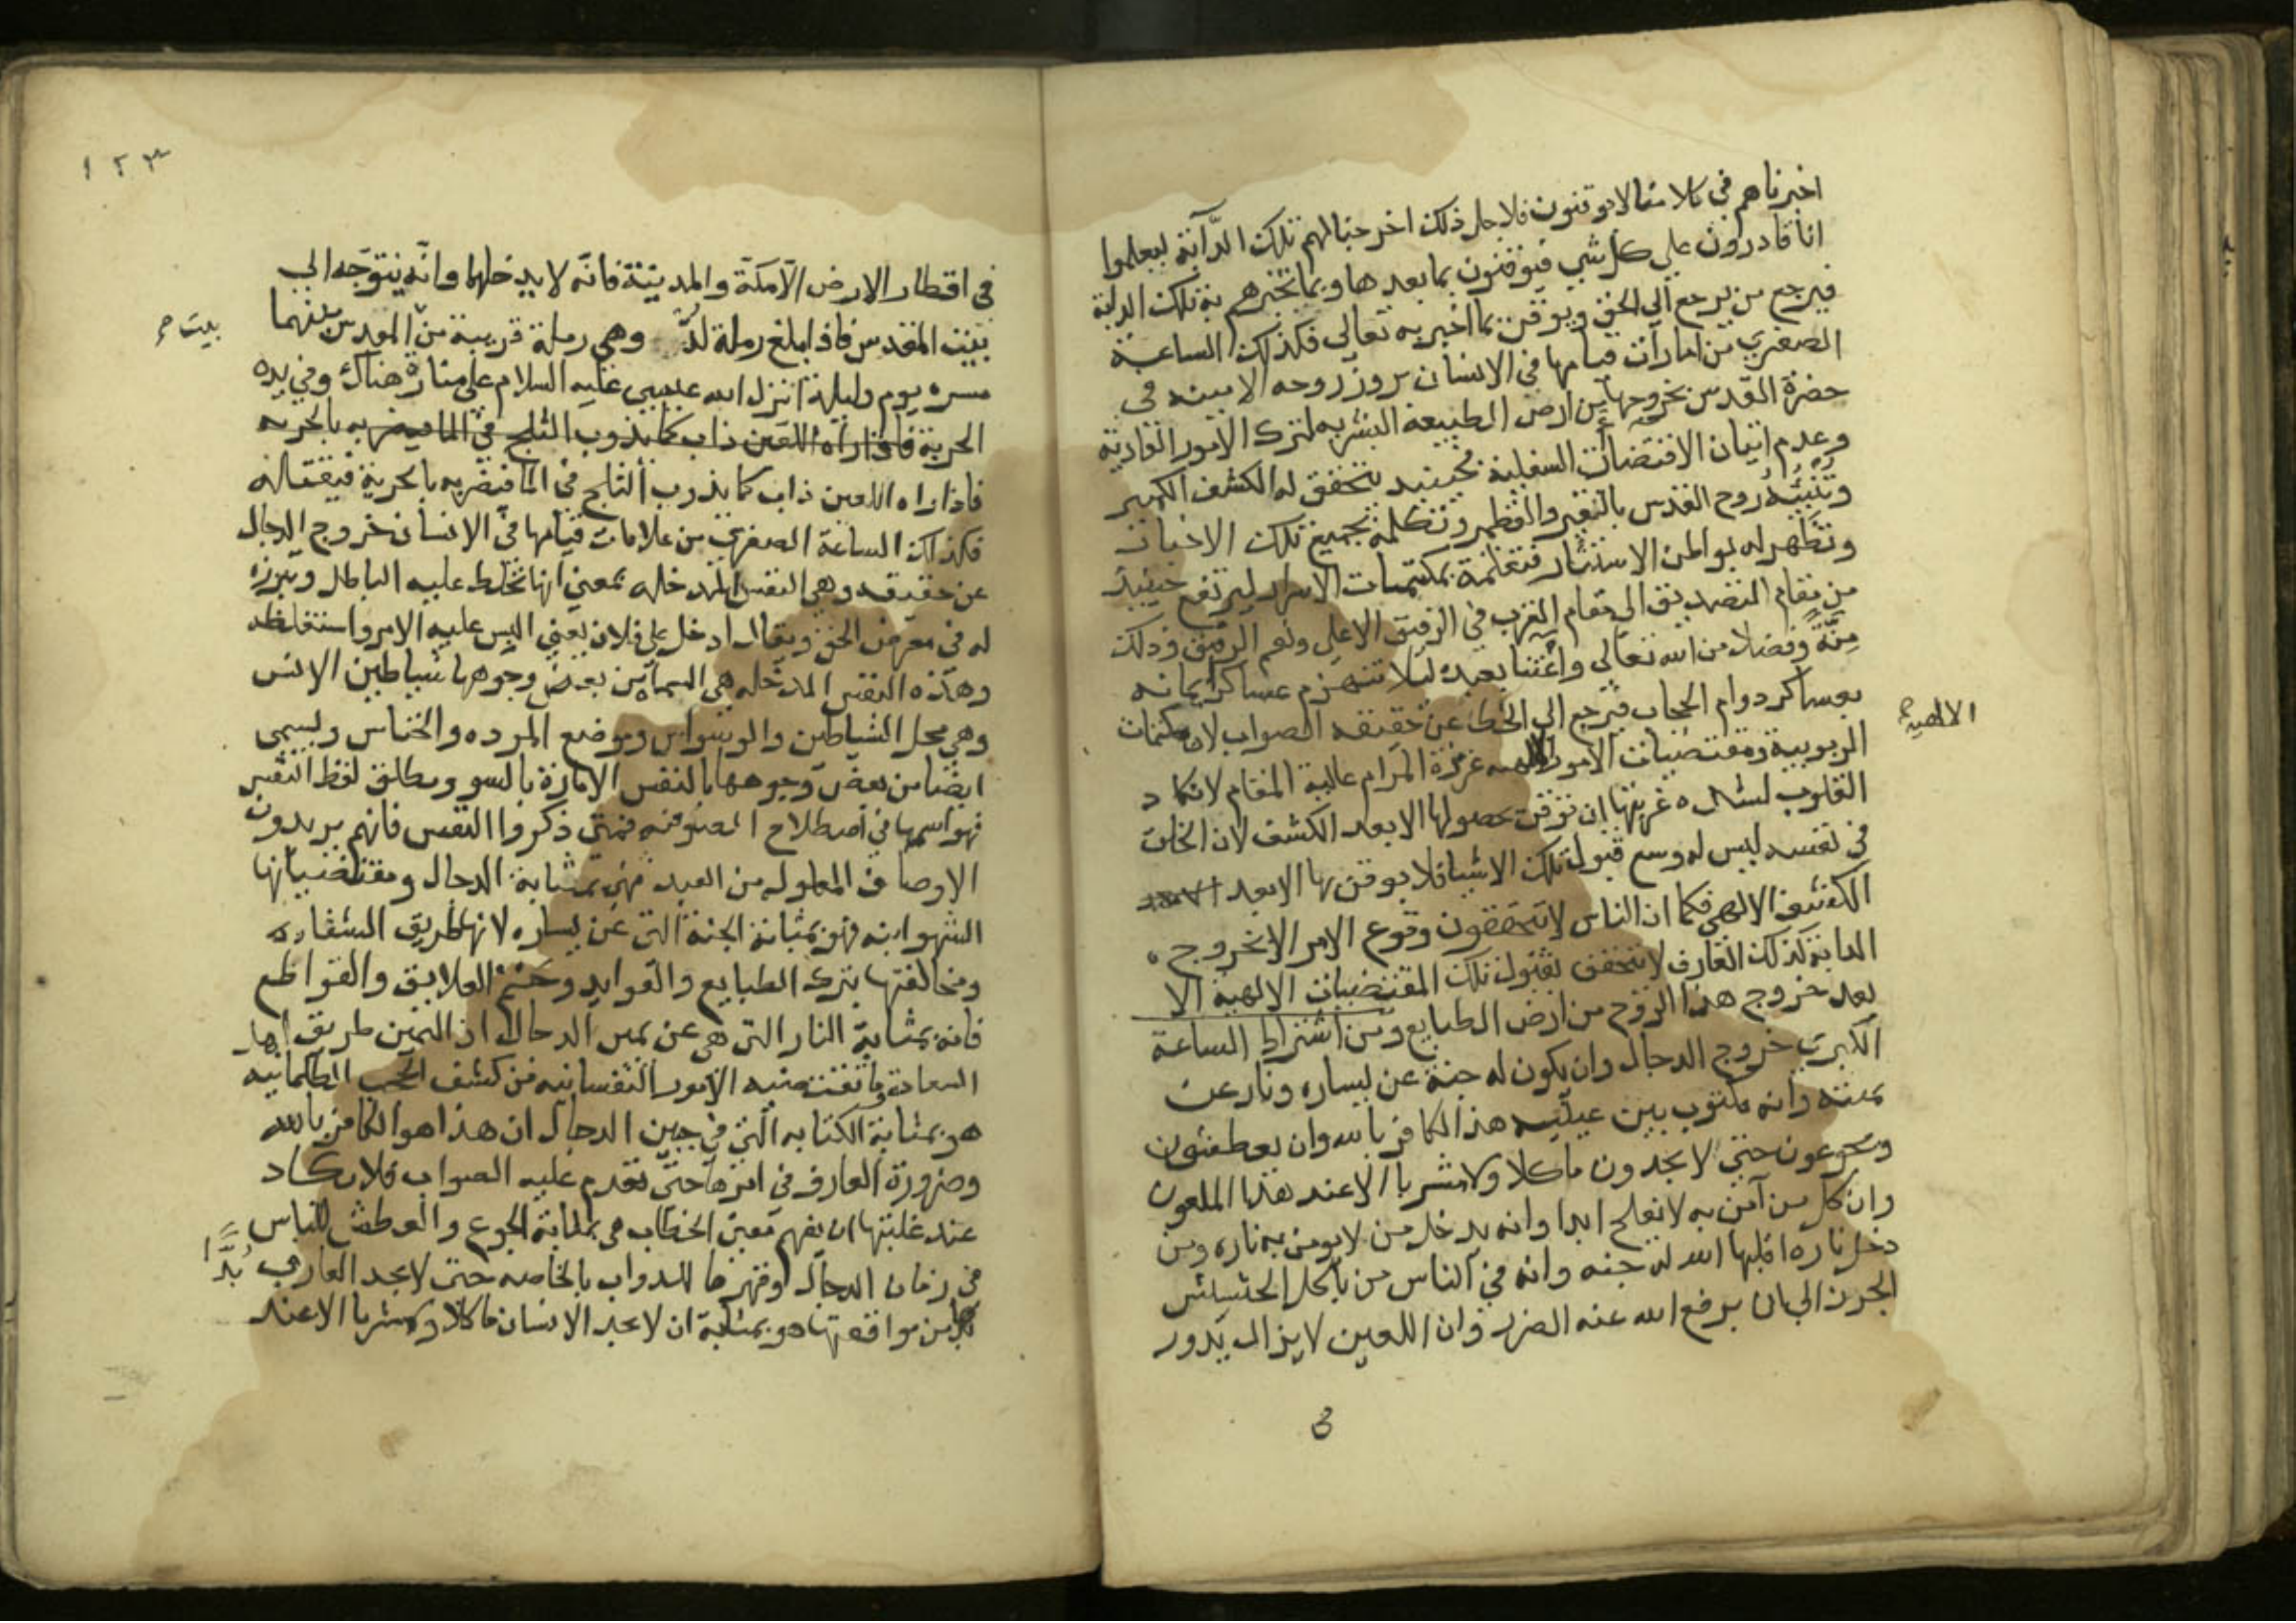 اخبرناهم في كلامنا لا يوقنون فلاجل ذلك اخرجنا لهم تلك الدآبة ليعلموا
انا قادرون على كل شي فيوقنون بما بعدها وبما تخبرهم به تلك الدابة
فيرجع من يرجع الي الحق ويوقن بما اخبر به تعالى فكذلك الساعة
الصغري من امارات قيامها في الانسان بروز روحه الامينه في
حضرة القدس بخروجها من ارض الطبيعة البشريه لترك الامور العادية
وعدم اتيان الاقتضات السفلية فحينيد يتحقق له الكشف الكبير
وتنبئه روح القدس بالنقير والقطمير وتكلمه بجميع تلك الاخبارات
وتظهر له بواطن الاستتار فتعلمه بمكتمات الاسرار ليرتفع حينيذ
من مقام التصديق الى مقام القرب في الرفيق الاعلي ونعم الرفيق وذلك
مِنّة وفضلا من الله تعالى واعتنا بعبده ليلا تنهزم عساكر ايمانه
بعساكر دوام الحجاب فيرجع الي الخطا عن حقيقه الصواب لان مكتمات
الربوبية ومقتضيات الامور عزيزة المرام عالية المقام لا تكاد
الالهية صح
القلوب لشده غربتها ان توقن بحصولها الا بعد الكشف لان الخلق
في نفسه ليس له وسع قبول تلك الاشيا فلا يوقن بها الا بعد
الكشف الالهي فكما ان الناس لا يتحققون وقوع الامر الا بخروج
الدابة كذلك العارف لا يتحقق بقبول تلك المقتضيات الالهية الا
بعد خروج هذا الروح من ارض الطبايع ومن اشتراط الساعة
الكبري خروج الدجال وان يكون له جنة عن يساره ونار عن
يمينه وانه مكتوب بين عينيه هذا الكافر بالله وان يعطشون
ويجوعون حتي لا يجدون ماكلا ولا مشربا الا عند هذا الملعون
وان كل من آمن به لا يفلح ابدا وانه يدخل من لا يومن به ناره ومن
دخل ناره اقلبها الله له جنه وانه في الناس من ياكل الحشيش
الجزر الي ان يرفع الله عنه الضرر وان اللعين لا يزال يدور
3
١٢٣
في اقطار الارض الآ مكة والمدينة فانه لا يدخلها وانه يتوجه الي
بيت المقدس فاذا بلغ رملة لد وهي رملة قريبة من المقدس بينهما
بيت صح
مسره يوم وليلة انزل الله عيسي عليه السلام على منارة هناك وفي يده
الحربة فاذا راه اللعين ذاب كما يذوب الثلج في الما فيضربه بالحربه
فاذا راه اللعين ذاب كما يذوب الثلج في الما فيضربه بالحربة فيقتاله
فكذلك الساعة الصغري من علامات قيامها في الانسان خروج الدجال
عن حقيقه وهي النفس المدخاله بمعني انها تخلط عليه الباطل وتبرزه
له في معرض الحق ويقال ادخل علي فلان يعني البس عليه الامر واستغلظه
وهذه النفس المدخله هي المسماه من بعض وجوهها شياطين الانس
وهي محل الشياطين والوسواس وموضع المرده والخناس وليسمى
ايضا من بعض وجوهها بالنفس الامارة بالسو ومطلق لفظ النفس
فهو اسمها في اصطلاح الصوفيه فمتي ذكروا النفس فانهم يريدون
الاوصاف المعلوله من العبد فهي بمثابة الدجال ومقتضياتها
الشهوانيه فهو بمثابة الجنة التي عن يساره لانها طريق الشقاوه
ومخالفتها بترك الطبايع والعوايد وحسم العلايق والقواطع
فانه بمثابة النار التي هي عن يمين الدجال اذ اليمين طريق اهل
السعادة وما تقتضيه الامور النفسانيه من كشف الحجب الظلمانيه
هو بمثابة الكتابه التي في جبين الدجال ان هذا هو الكافر بالله
وضرورة العارف في اثرها حتى تقدم عليه الصواب فلا يكاد
عند غلبتها ان يفهم معني الخطاب هي بمثابة الجوع والعطش للناس
في زمان الدجال وقهرها للدواب بالخاصه حتي لا يجد العارف بُدًّا
من موافقتها هو بمثابة ان لا يجد الانسان ماكلا ومشربا الا عند